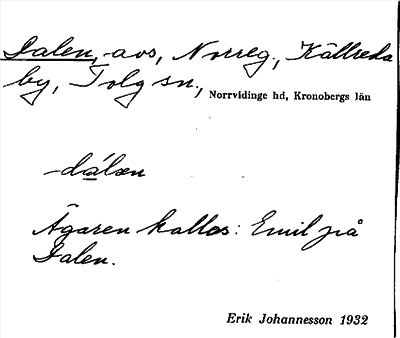 Dalen, -avs, Norreg., Källreda
by, Tolg sn., Norrvidinge hd, Kronobergs län
-dálæn
Ägaren kallas: Emil på
Dalen.
Erik Johannesson 1932